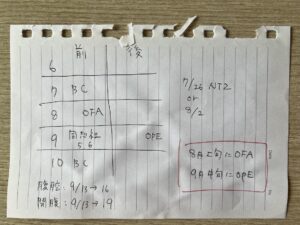 前 後
6
7 BC
8 OFA
9 OPE
5.6
10 BC
腹腔: 9/13→16
開腹: 9/13→19
7/26 NTZ
or
8/2
8月上旬にOFA
9月中旬にOPE